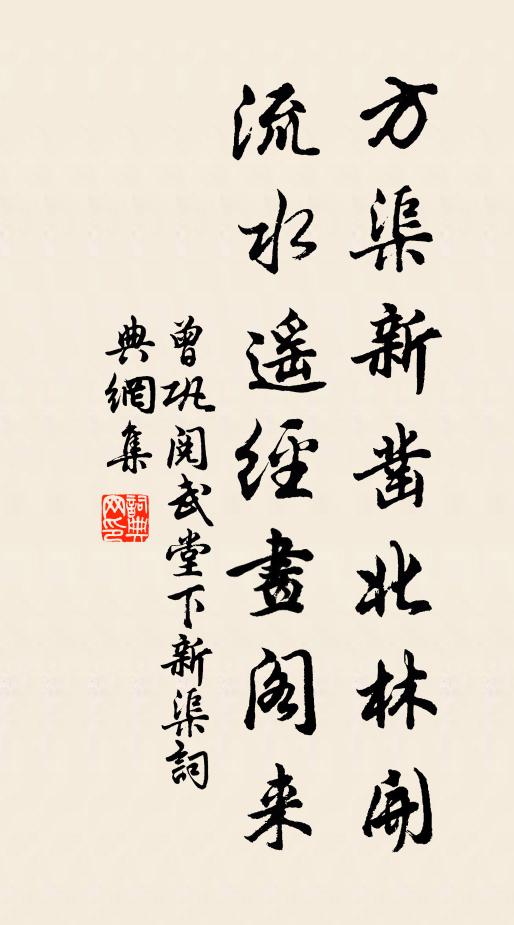 方渠新凿北林開
流水遥經畫阁来
曾巩阅武堂下新渠詞
典網集
詞典
网印